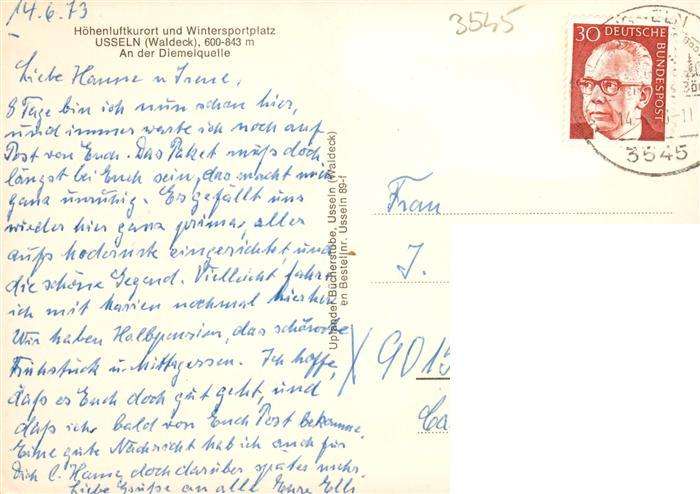 14.6.73
3545
Höhenluftkurort und Wintersportplatz
USSELN (Waldeck), 600-843 m
An der Diemelquelle
Liebe Hanne u. Irene,
8 Tage bin ich nun schon hier,
und immer warte ich noch auf
Post von Euch. Das Paket muß doch
längst bei Euch sein, das macht mich
ganz unruhig. Es gefällt uns
wieder hier ganz prima, alles
aufs modernste eingerichtet, und
die schöne Gegend. Vielleicht fahre
ich mit nochmal hierher.
Wir haben Halbpension, das schönste
Frühstück u. Mittagessen. Ich hoffe,
daß es Euch doch gut geht, und
daß ich bald von Euch Post bekomme.
Eine gute Nachricht hab ich auch für
Dich l. Hanne, doch darüber später mehr.
Liebe Grüße an alle Eure Elli
Upländer Bücherstube, Usseln (Waldeck)
en Bestellnr. Usseln 89-f
30 DEUTSCHE
BUNDESPOST
3545
Frau
J.